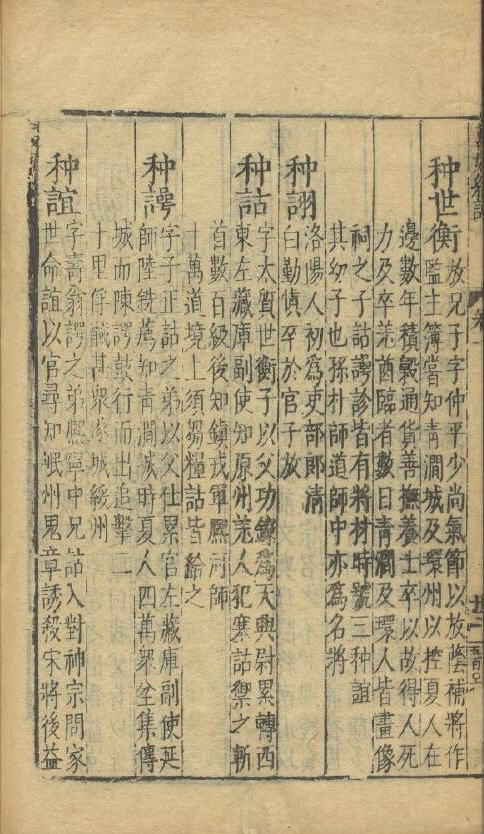 种世衡放兄子字仲平少尚氣節以放蔭補將作
監主簿嘗知青澗城及環州以控夏人在
邊數年積穀通貨善撫養士卒以故得人死
力及卒羌酋臨者數日青澗及環人皆畫像
祠之子詁諤診皆有將材時號三种誼
其幼子也孫朴師道師中亦爲名將
种詡洛陽人初爲吏部郎清
白勤慎卒於官子放
种詁字大質世衡子以父功錄爲天興尉累轉西
東左藏庫副使知原州羌人犯寨詁禦之斬
首數百級後知鎮戎軍熈河師
十萬道境上須芻糧詁皆給之
种諤字子正詁之弟以父仕累官左藏庫副使延
師陸銑薦知青澗城時夏人四萬衆坌集傅
城而陳諤鼓行而出追擊二
十里俘馘甚衆遂城綏州
种誼字壽翁諤之弟熈寧中兄詁入對神宗問家
世命誼以官尋知岷州鬼章誘殺宋將後益